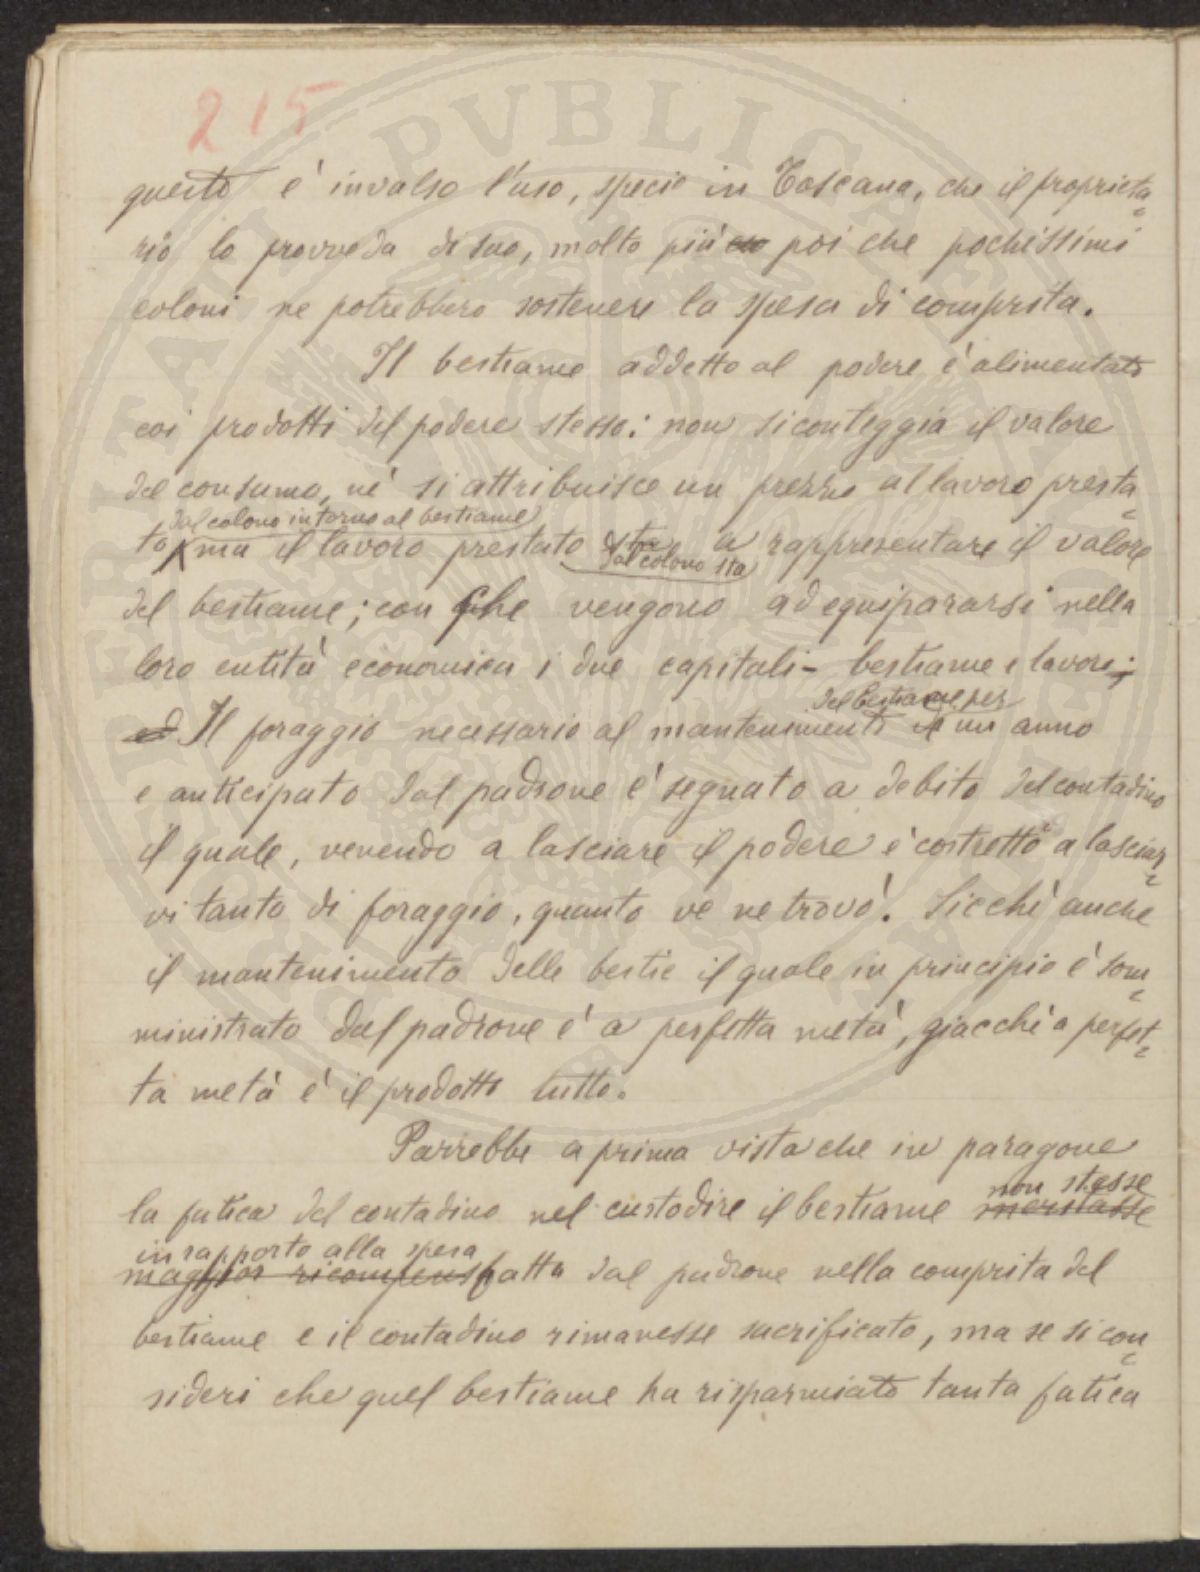 215
questo è invalso l'uso, specie in Toscana, che il proprieta=
rio lo provveda di suo, molto più poi che pochissimi
coloni ne potrebbero sostenere la spesa di comprita.
Il bestiame addetto al podere è alimentato
coi prodotti del podere stesso: non si conteggia il valore
del consumo, nè si attribuisce un prezzo al lavoro presta=
dal colono intorno al bestiame
to, ma il lavoro prestato sta a rappresentare il valore
dal colono sta
del bestiame; con che vengono ad equipararsi nella
loro entità economica i due capitali - bestiame e lavoro;
del bestiame per
ed Il foraggio necessario al mantenimento di un anno
e anticipato dal padrone è segnato a debito del contadino
il quale, venendo a lasciare il podere è costretto a lasciar=
vi tanto di foraggio, quanto ve ne trovò. Sicchè anche
il mantenimento delle bestie il quale in principio è som=
ministrato dal padrone è a perfetta metà, giacchè a perfet=
ta metà è il prodotto tutto.
Parrebbe a prima vista che in paragone
non stesse
la fatica del contadino nel custodire il bestiame meritasse
in rapporto alla spesa
maggior ricompensa fatta dal padrone nella comprita del
bestiame e il contadino rimanesse sacrificato, ma se si con=
sideri che quel bestiame ha risparmiato tanta fatica
PUBLICAE